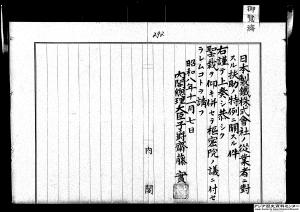 御覧済
292
日本製鐵株式會社ノ従業者ニ對
スル扶助ノ特例ニ關スル件
右謹テ上奏シ恭シク
聖裁ヲ仰キ併セテ樞密院ノ議ニ付セ
ラレムコトヲ請フ
昭和八年十一月七日
内閣總理大臣子爵齋藤實
内閣
アジア歴史資料センター